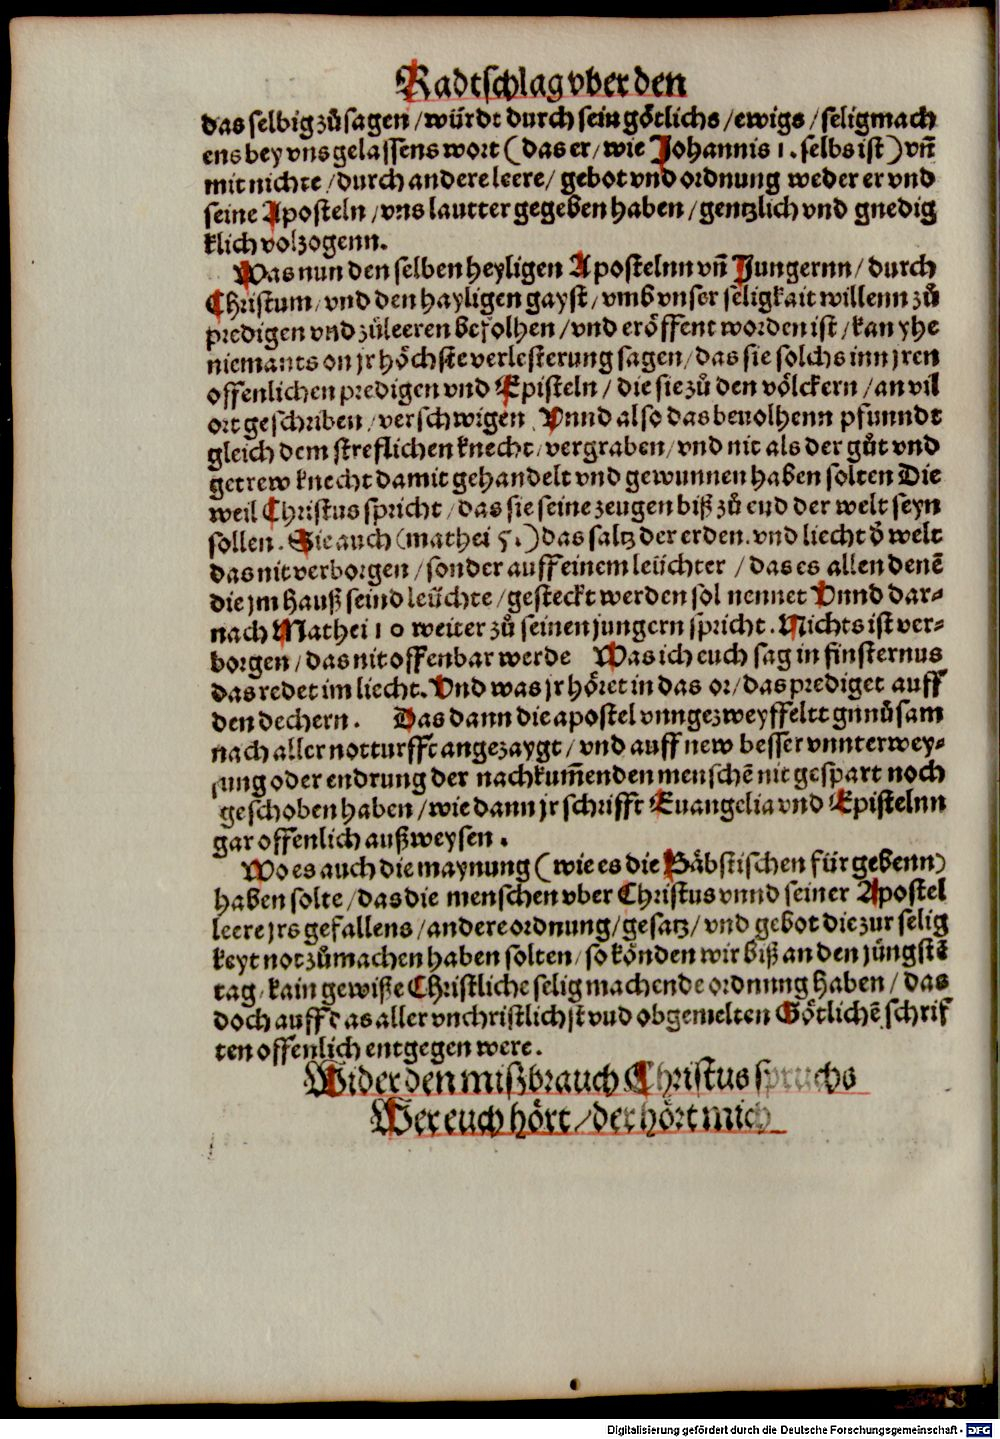 Radtschlag vber den
das selbig zůsagen / würdt durch sein götlichs / ewigs / seligmach
ens bey vns gelassens wort ( das er / wie Johannis 1. selbs ist ) vñ
mit nichte / durch andere leere / gebot vnd ordnung weder er vnd
seine Aposteln / vns lautter gegeben haben / gentzlich vnd gnedig
klich volzogenn.
Was nun den selben heyligen Apostelnn vñ Jungernn / durch
Christum / vnd den hayligen gayst / vmb vnser seligkait willenn zů
predigen vnd zůleeren befolhen / vnd eröffent worden ist / kan yhe
niemants on jr höchste verlesterung sagen / das sie solchs inn jren
offenlichen predigen vnd Episteln / die sie zů den völckern / an vil
ort geschriben / verschwigen . Vnnd also das beuolhenn pfunndt
gleich dem streflichen knecht / vergraben / vnd nit als der gůt vnd
getrew knecht damit gehandelt vnd gewunnen haben solten Die
weil Christus spricht / das sie seine zeugen biß zů end der welt seyn
sollen . Sie auch ( mathei 5. ) das saltz der erden . vnd liecht ð welt
das nit verborgen / sonder auff einem leüchter / das es allen denē
die jm hauß seind leüchte / gesteckt werden sol nennet Vnnd dar-
nach Mathei 10 weiter zů seinen jungern spricht . Nichts ist ver-
borgen / das nit offenbar werde Was ich euch sag in finsternus
das redet im liecht. Vnd was jr höret in das or / das prediget auff
den dechern . Das dann die apostel vnngezweyffeltt gnnůsam
nach aller notturfft angezaygt / vnd auff new besser vnnterwey-
sung oder endrung der nachkum̄enden menschē nit gespart noch
geschoben haben / wie dann jr schrifft Euangelia vnd Epistelnn
gar offenlich außweysen .
Wo es auch die maynung ( wie es die Bäbstischen für gebenn )
haben solte / das die menschen vber Christus vnnd seiner Apostel
leere jrs gefallens / andere ordnung / gesatz / vnd gebot die zur selig
keyt not zůmachen haben solten / so könden wir biß an den jüngstē
tag / kain gewiße Christliche selig machende ordnung haben / das
doch auff das aller vnchristlichst vnd obgemelten Götlichē schrif
ten offenlich entgegen were .
Wider den mißbrauch Christus spruchs
Wer euch hört / der hört mich
Digitalisierung gefördert durch die Deutsche Forschungsgemeinschaft - DFG